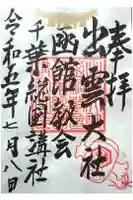 奉拝
出雲大社
函館教会
千葉総国講社
令和五年七月八日